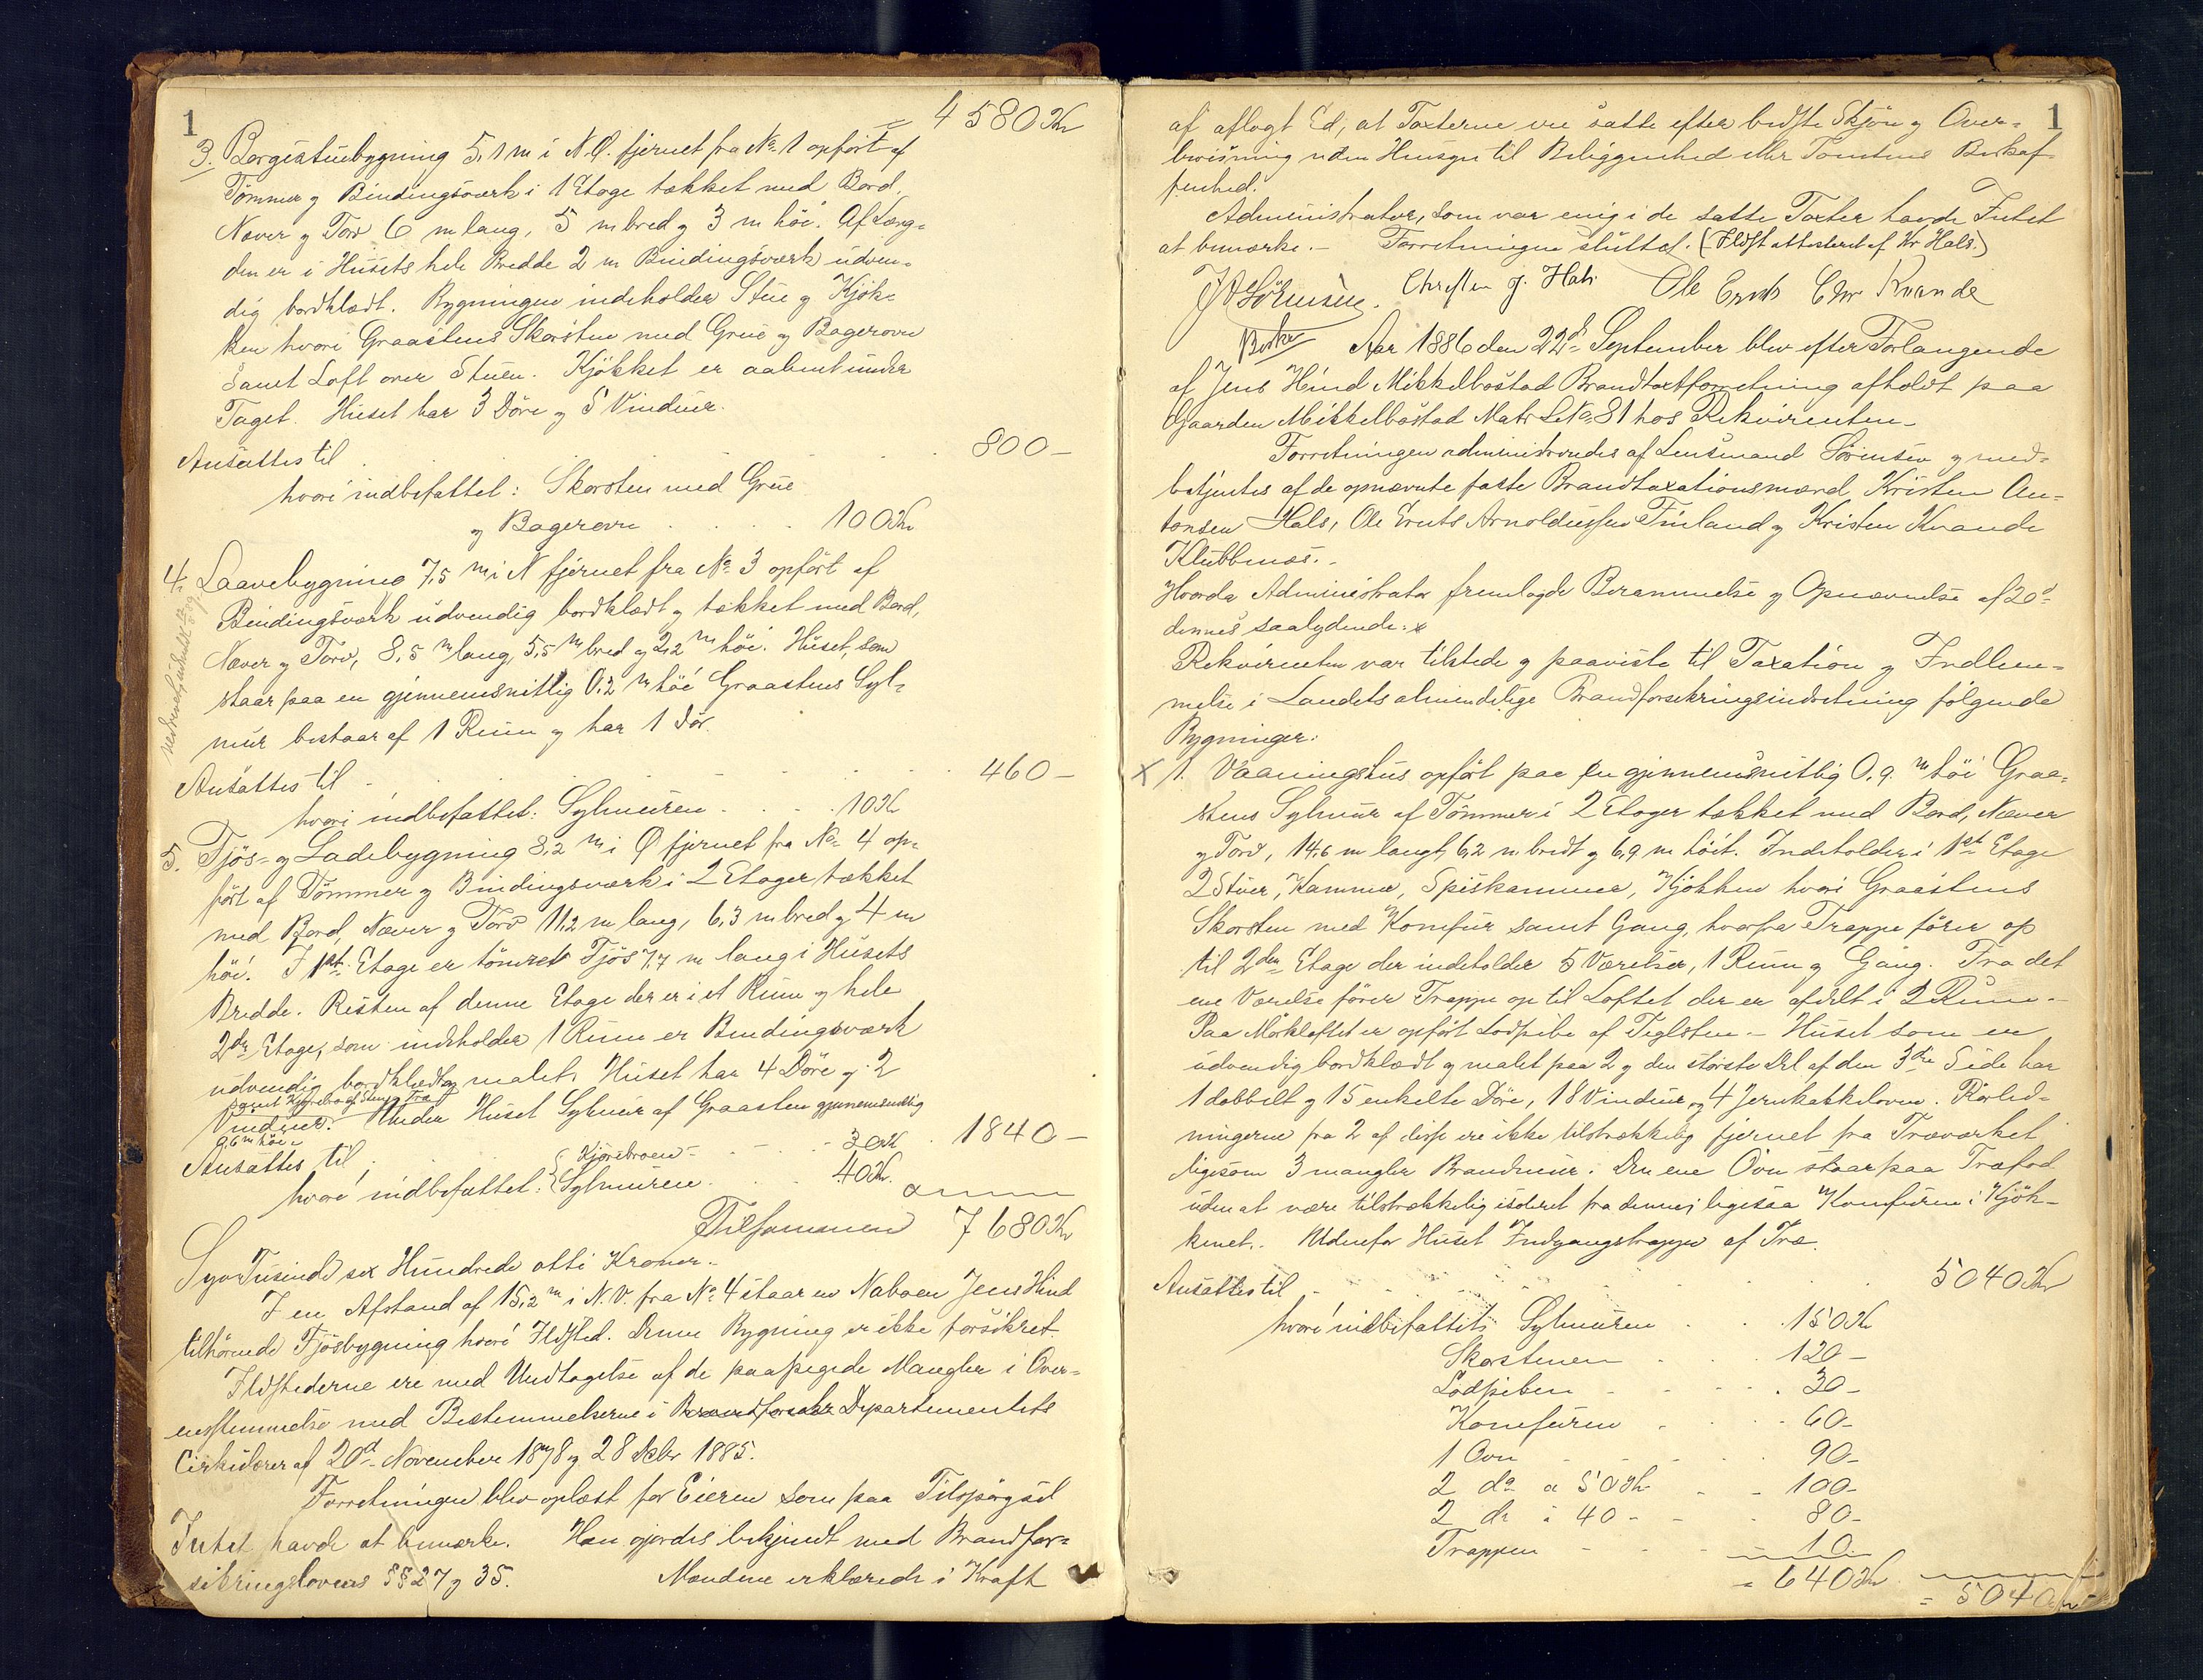 1
4580 Kr
3. Borgestuebygning 5,1 m i N.Ø. fjernet fra No 1 opført af
Tømmer og Bindingsværk i 1 Etage tækket med Bord,
Næver og Torv 6 m lang, 5 m bred og 3 m høi. Af Læng-
den er i Husets hele Bredde 2 m Bindingsværk udven-
dig bordklædt. Bygningen indeholder Stue og Kjøk-
ken hvori Graastens Skorsten med Grue og Bagerovn
samt Loft over Stuen. Kjøkket er aabent under
Taget. Huset har 3 Döre og 5 Vinduer.
Ansættes til 800 –
hvori indbefattet: Skorsten med Grue
og Bagerovn 100 Kr
4. Laavebygning 7,5 m i N fjernet fra No 3 opført af
Bindingsværk udvendig bordklædt og tækket med Bord,
Næver og Torv, 8,5 m lang, 5,5 m bred og 2,2 m høi. Huset, som
staar paa en gjennemsnitlig 0,2 m høi Graastens Syl-
mur bestaar af 1 Rum og har 1 Dör.
Ansættes til 460 –
hvori indbefattet: Sylmuren 10 Kr
5. Fjös- og Ladebygning 8,2 m i Ø fjernet fra No 4 op-
ført af Tømmer og Bindingsværk i 2 Etager tækket
med Bord, Næver og Torv 11,2 m lang, 6,3 m bred og 4 m
høi. I 1ste Etage er tömret Fjös 7,7 m lang i Husets
Bredde. Resten af denne Etage der er i et Rum og hele
2den Etage, som indeholder 1 Rum er Bindingsværk
udvendig bordklædt og malet. Huset har 4 Döre og 2
samt Kjørebro af Sten og Træ
Vinduer. Under Huset Sylmur af Graasten gjennemsnitlig
0,6 m høi.
Ansættes til 1840 –
Kjørebroen – 30 Kr
hvori indbefattet: Sylmuren 40 Kr.
Tilsammen 7680 Kr
Syv Tusinde sex Hundrede otti Kroner.
I en Afstand af 15,2 m i N.V. fra No 4 staar en Naboen Jens Hind
tilhørende Fjösbygning hvori Ildsted. Denne Bygning er ikke forsikret.
Ildstederne ere med Undtagelse af de paapegede Mangler i Over-
ensstemmelse med Bestemmelserne i Departementets
Cirkulærer af 20de November 1878 og 28 Debr 1885.
Forretningen blev oplæst for Eieren som paa Tilspørgsel
Intet havde at bemærke. Han gjordes bekjendt med Brandfor-
sikringslovens §§ 27 og 35. Mændene erklærede i Kraft
1
af aflagt Ed, at Taxterne ere satte efter bedste Skjøn og Over-
bevisning uden Hensyn til Beliggenhed eller Tomtens Beskaf-
fenhed.
Administrator, som var enig i de satte Taxter havde Intet
at bemærke. – Forretningen sluttet. (Ildst attesteret af Kr Hals.)
J Sörensen. Christen J. Hals Ole Ernts Chr Kvande
Aar 1886 den 22de September blev efter Forlangende
af Jens Hind Mikkelbostad Brandtaxtforretning afholdt paa
Gaarden Mikkelbostad Matr LNo 81 hos Rekvirenten.
Forretningen administreredes af Lensmand Sörensen og med-
betjentes af de opnævnte faste Brandtaxationsmænd Kristen An-
tonsen Hals, Ole Ernts Arnoldussen Finland og Kristen Kvande
Klubbnæs. –
Hvorda Administrator fremlagde Berammelse og Opnævnelse af 20de
dennes saalydende: x
Rekvirenten var tilstede og paaviste til Taxation og Indlem-
melse i Landets almindelige Brandforsikringsindretning følgende
Bygninger:
x 1. Vaaningshus opført paa en gjennemsnitlig 0,9 m høi Graa-
stens Sylmur af Tømmer i 2 Etager tækket med Bord, Næver
og Torv, 14,6 m langt, 6,2 m bredt og 6,9 m høit. Indeholder i 1ste Etage
2 Stuer, Kammer, Spiskammer, Kjøkken hvori Graastens
Skorsten med Komfur samt Gang, hvorfra Trappe fører op
til 2den Etage der indeholder 5 Værelser, 1 Rum og Gang. Fra det
ene Værelse fører Trappe op til Loftet der er afdelt i 2 Rum. –
Paa Mørkloftet er opført Lodpibe af Teglsten. – Huset som er
udvendig bordklædt og malet paa 2 og den største Del af den 3die Side har
1 dobbelt og 15 enkelte Döre, 18 Vinduer og 4 Jernkakkelovne. Rørled-
ningerne fra 2 af disse ere ikke tilstrækkelig fjernet fra Træværket
ligesom 3 mangler Brandmur. Den ene Ovn staar paa Træfod
uden at være tilstrækkelig isoleret fra denne; ligesaa Komfuren i Kjøk-
kenet. Udenfor Huset Indgangstrappe af Træ.
Ansættes til 5040 Kr
hvori indbefattet: Sylmuren 150 Kr
Skorstenen 120 –
Lodpiben 30 –
Komfuren 60 –
1 Ovn 90 –
2 do a 50 Kr 100 –
2 do à 40 – 80 –
Trappen 10
= 640 Kr
= 5040 Kr